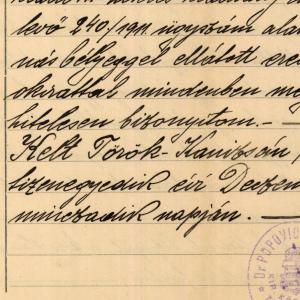 levő 240/1911 ügyszám ala
nás bélyeggel ellátott ere
okirattal mindenben me
hitelesen bizonyitom.-
Kelt Török-Kanizsán,
tizenegyedik évi Deczem
minczadik napján.
Dr POPOVIC